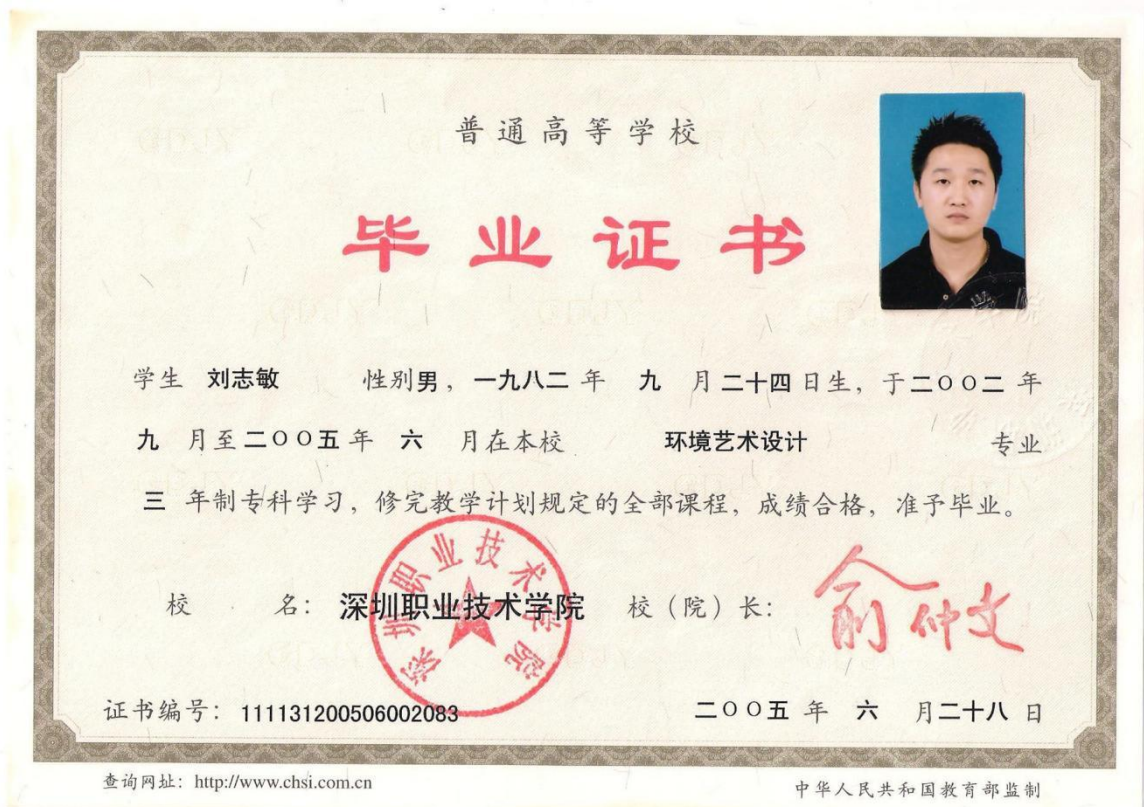 普通高等学校
毕业证书
学生 刘志敏 性别男，一九八二 年 九 月二十四日生，于二〇〇二 年
九 月至二〇〇五年 六 月在本校 环境艺术设计 专业
三 年制专科学习，修完教学计划规定的全部课程，成绩合格，准予毕业。
深圳职业技术学院
校 名：深圳职业技术学院 校（院）长：俞仲文
证书编号：111131200506002083 二〇〇五 年 六 月二十八 日
查询网址：http://www.chsi.com.cn 中华人民共和国教育部监制